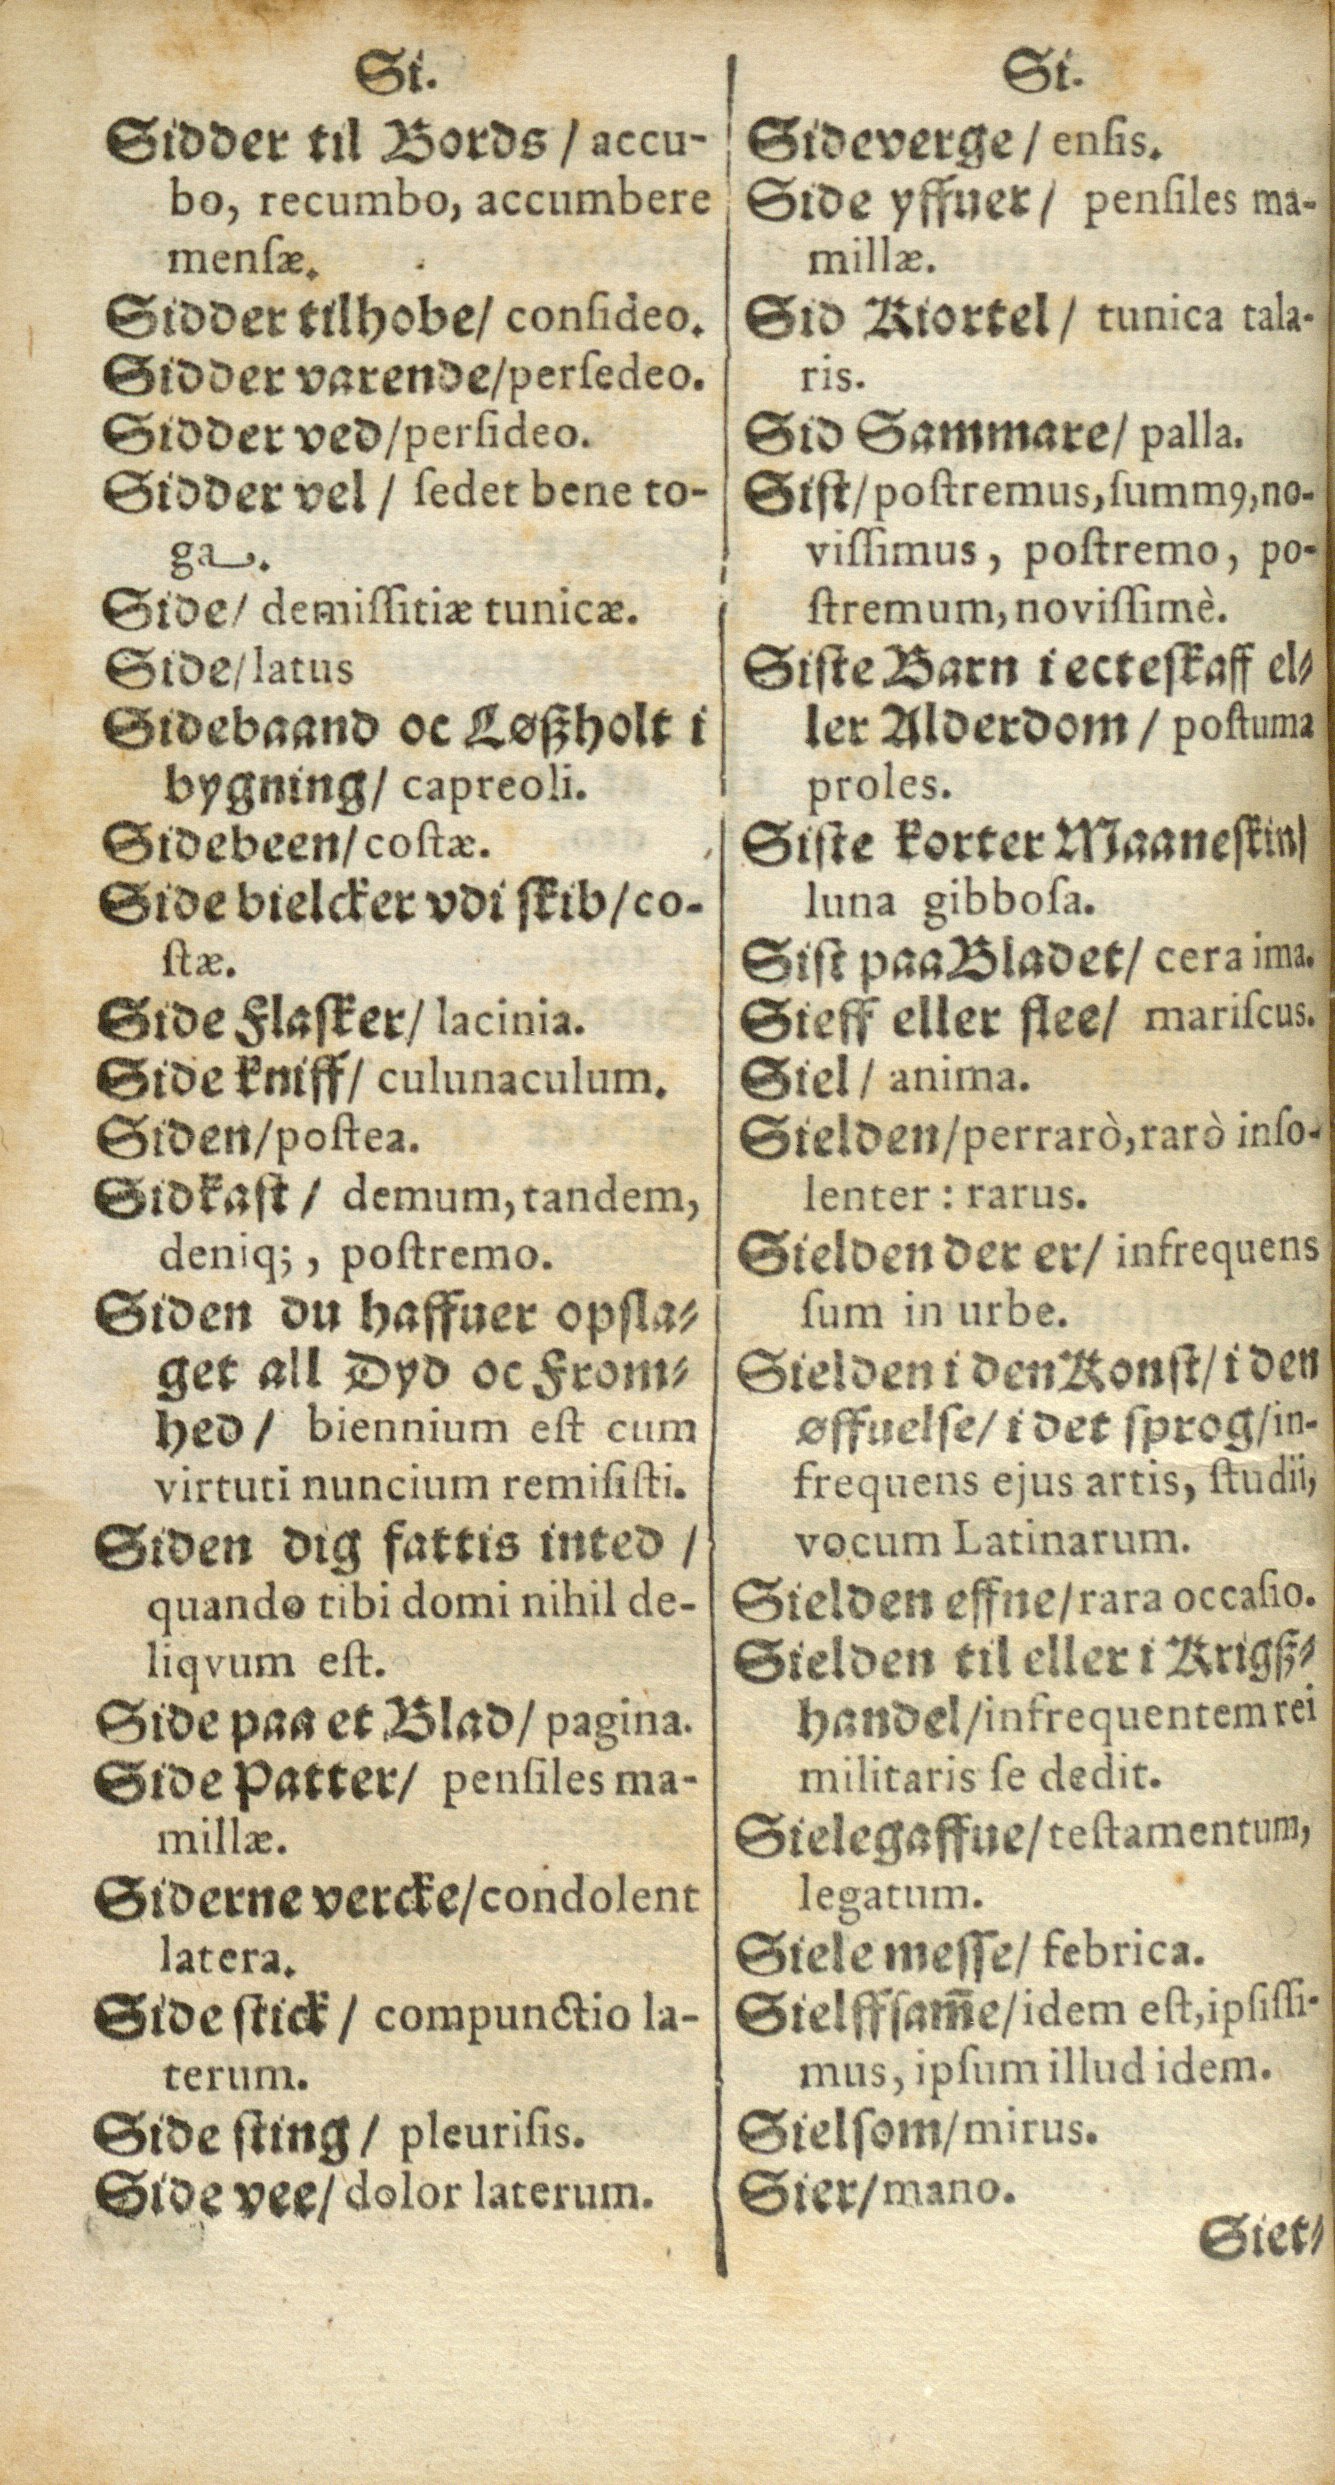 Si.
Sidder til Bords / accu-
bo, recumbo, accumbere
menſæ.
Sidder tilhobe/ conſideo.
Sidder varende/perſedeo.
Sidder ved/perſideo.
Sidder vel / ſedet bene to-
ga.
Side/ demiſſitiæ tunicæ.
Side/latus
Sidebaand oc Løßholt i
bygning/ capreoli.
Sidebeen/coſtæ.
Side bielcker vdi ſkib/co-
ſtæ.
Side Flaſker/ lacinia.
Side kniff/ culunaculum.
Siden/poſtea.
Sidkaſt / demum, tandem,
deniq; , poſtremo.
Siden du haffuer opſla-
get all Dyd oc From-
hed / biennium eſt cum
virtuti nuncium remiſiſti.
Siden dig fattis inted /
quando tibi domi nihil de-
liqvum eſt.
Side paa et Blad/ pagina.
Side Patter/ penſiles ma-
millæ.
Siderne vercke/condolent
latera.
Side ſtick / compunctio la-
terum.
Side ſting / pleuriſis.
Side vee/dolor laterum.
Si.
Sideverge / enſis.
Side yffuer / penſiles ma-
millæ.
Sid Kiortel / tunica tala-
ris.
Sid Sammare/ palla.
Siſt/poſtremus,ſummꝰ,no-
viſſimus, poſtremo, po-
ſtremum, noviſſimè.
Siſte Barn i ecteſkaff el-
ler Alderdom / poſtuma
proles.
Siſte korter Maaneſkin/
luna gibboſa.
Siſt paa Bladet/ cera ima.
Sieff eller flee/ mariſcus.
Siel / anima.
Sielden/perrarò,rarò inſo-
lenter : rarus.
Sielden der er/ infrequens
ſum in urbe.
Sielden i den Konſt/ i den
øffuelſe/ i det ſprog/in-
frequens ejus artis, ſtudii,
vocum Latinarum.
Sielden effne/rara occaſio.
Sielden til eller i Krigß-
handel/infrequentem rei
militaris ſe dedit.
Sielegaffue/teſtamentum,
legatum.
Siele meſſe/ febrica.
Sielffſam̄e/idem eſt,ipſiſſi-
mus, ipſum illud idem.
Sielſom/mirus.
Sier/mano.
Siet-